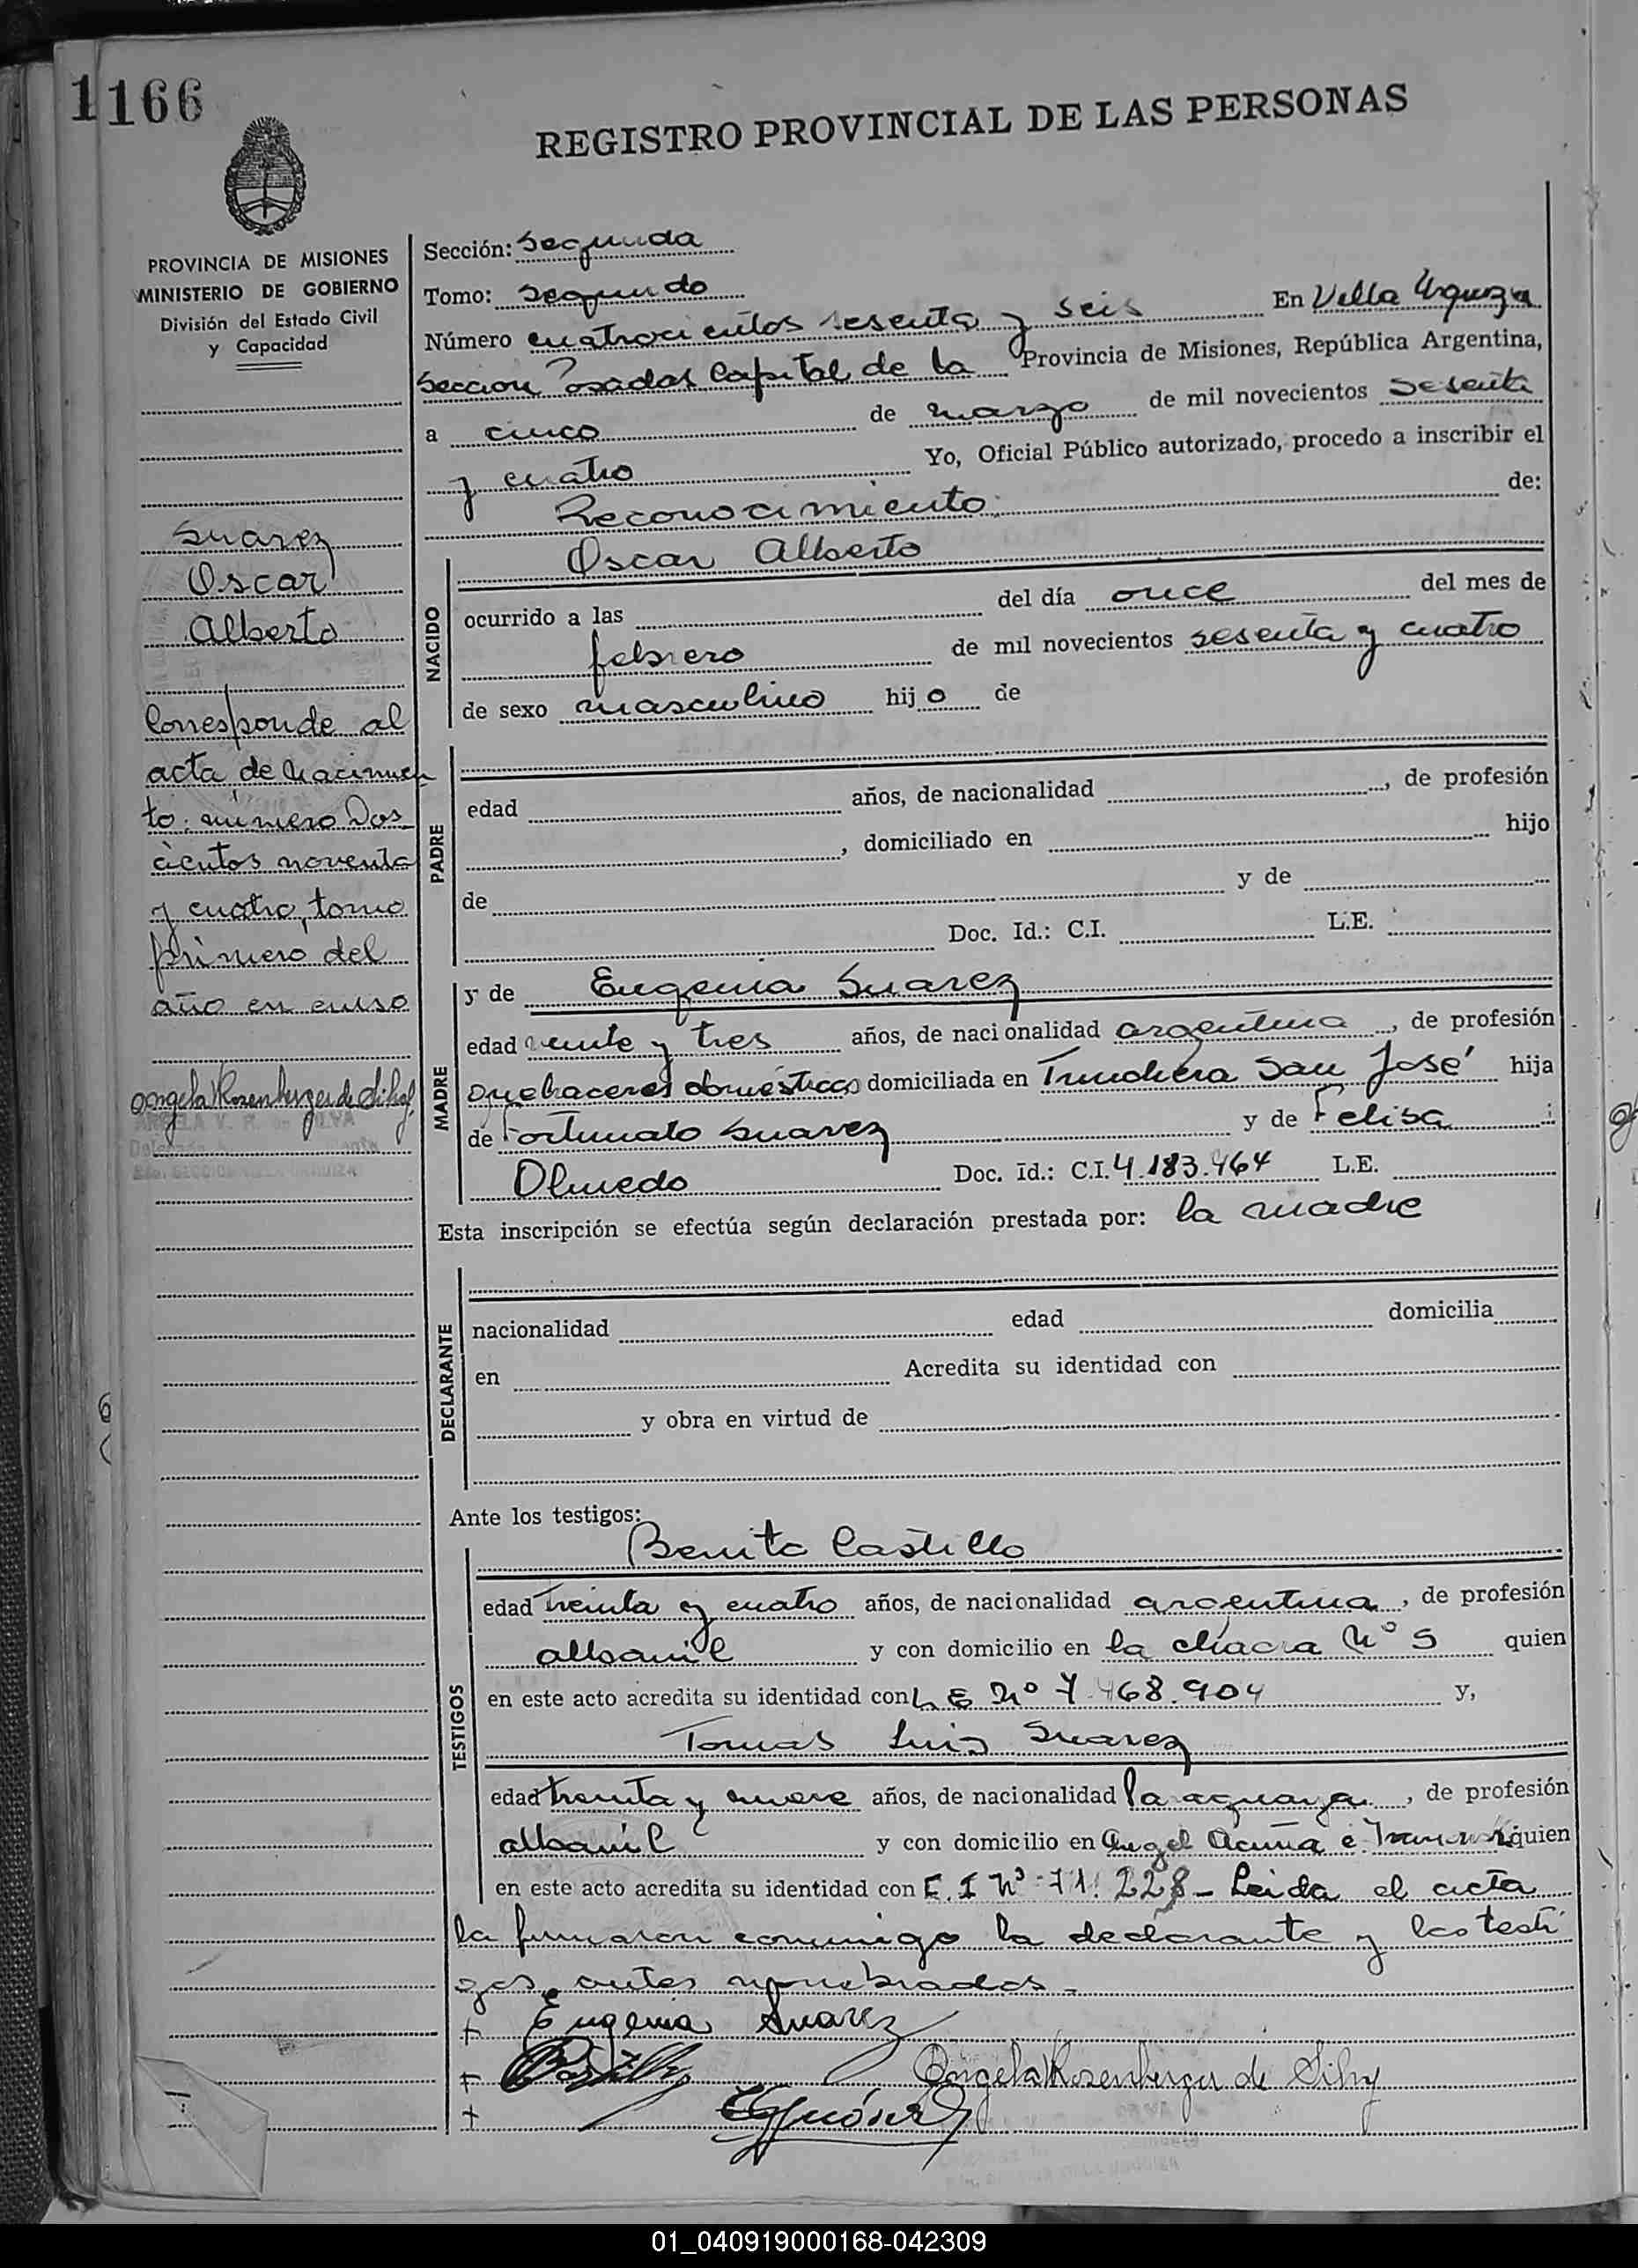 1166
REGISTRO PROVINCIAL DE LAS PERSONAS
PROVINCIA DE MISIONES
MINISTERIO DE GOBIERNO
División del Estado Civil
y Capacidad
Suarez
Oscar
Alberto
Corresponde al
acta de nacimien
to: número Dos
cientos noventa
y cuatro, tomo
primero del
año en curso
Angela V Rosenberger de Silva
Sección: Segunda
Tomo: Segundo
Número cuatrocientos sesenta y seis En Villa Urquiza
Seccion Posadas Capital de la Provincia de Misiones, República Argentina,
a cinco de marzo de mil novecientos sesenta
y cuatro Yo, Oficial Público autorizado, procedo a inscribir el
Reconocimiento. de:
NACIDO
Oscar Alberto
ocurrido a las del día once del mes de
febrero de mil novecientos sesenta y cuatro
de sexo masculino hijo de
PADRE
edad años, de nacionalidad , de profesión
, domiciliado en hijo
de y de
Doc. Id.: C.I. L.E.
MADRE
y de Eugenia Suarez
edad veinte y tres años, de nacionalidad argentina, de profesión
quehaceres domésticos domiciliada en Trinchera San José hija
de Fortunato Suarez y de Felisa
Olmedo Doc. Id.: C.I. 4.183.464 L.E.
Esta inscripción se efectúa según declaración prestada por: la madre
DECLARANTE
nacionalidad edad domicilia
en Acredita su identidad con
y obra en virtud de
Ante los testigos:
TESTIGOS
Benito Castillo
edad treinta y cuatro años, de nacionalidad argentina, de profesión
albanil y con domicilio en la chacra Nº 5 quien
en este acto acredita su identidad con L E Nº 7.468.904 y,
Tomas Luis Suarez
edad treinta y nueve años, de nacionalidad Paraguaya, de profesión
albanil y con domicilio en Angel Acuña e quien
en este acto acredita su identidad con C.I Nº 71.228 - Leida el acta
la firmaron conmigo la declarante y los testi
gos antes nombrados -
+ Eugenia Suarez
+ Angela V Rosenberger de Silva
+
01_040919000168-042309